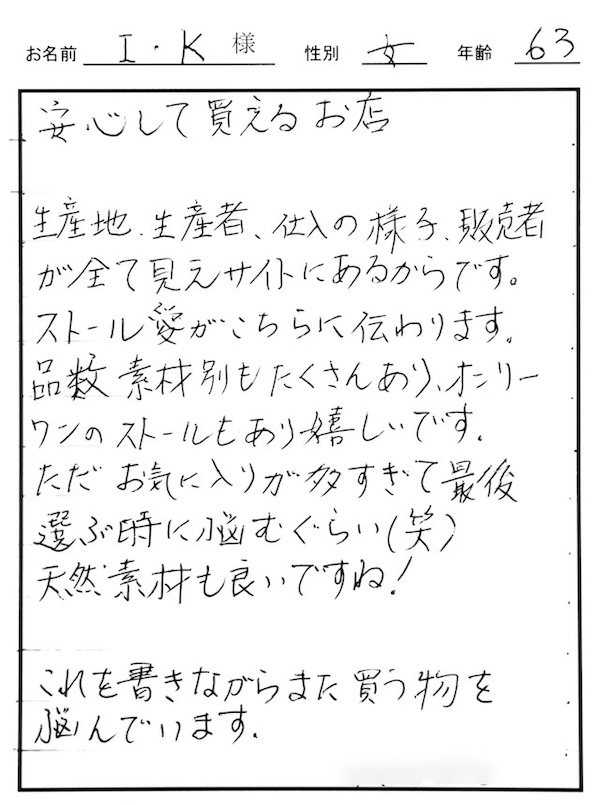 お名前 I・K 様 性別 女 年齢 63
安心して買えるお店
生産地、生産者、仕入の様子、販売者
が全て見えサイトにあるからです。
ストール愛がこちらに伝わります。
品数 素材別もたくさんあり、オンリー
ワンのストールもあり嬉しいです。
ただ お気に入りが多すぎて最後
選ぶ時に悩むぐらい(笑)
天然素材も良いですね!
これを書きながらまた買う物を
悩んでいます。